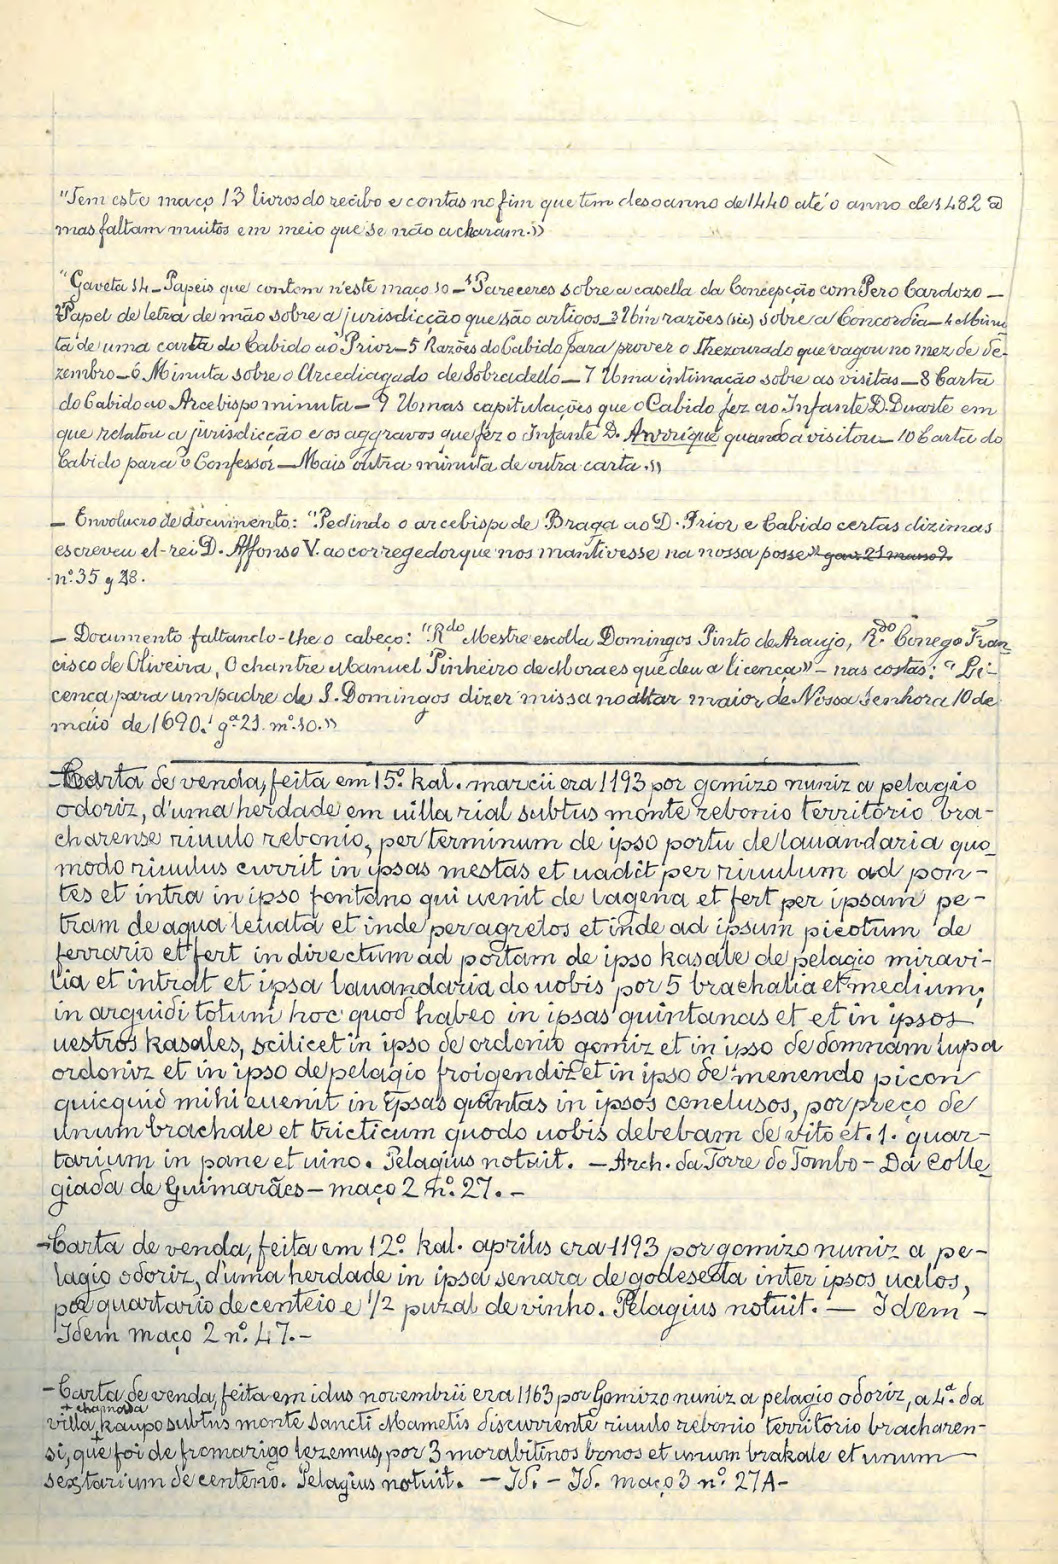 "Tem este maço 13 livros do recibo e contas no fim que tem des o anno de 1440 até o anno de 1482
mas faltam muitos em meio que se não acharam.»
"Gaveta 14 – Papeis que contem n'este maço 10 – 1 Pareceres sobre a casella da Concepção com Pero Cardozo –
Papel de letra de mão sobre a jurisdicção que são artigos – 3 Um razões (sic) sobre a Concordia – 4 Minu
ta de uma carta do Cabido ao Prior – 5 Razões do Cabido para prover o Thezourado que vagou no mez de de-
zembro – 6 Minuta sobre o Arcediagado de Sobradello – 7 Uma intimação sobre as visitas – 8 Carta
do Cabido ao Arcebispo minuta – 9 Umas capitulações que o Cabido fez ao Infante D. Duarte em
que relatou a jurisdicção e os aggravos que fez o Infante D. Anrrique quando a visitou – 10 Carta do
Cabido para o Confessor – Mais outra minuta de outra carta.»
– Envolucro de documento: "Pedindo o arcebispo de Braga ao D. Prior e Cabido certas dizimas
escreveu el-rei D. Affonso V. ao corregedor que nos mantivesse na nossa posse» gav. 21 masso 7.
nº 35 g 28.
– Documento faltando-lhe o cabeço: "Rdo Mestre escolla Domingos Pinto de Araujo, R.do Conego Fran-
cisco de Oliveira, O chantre Manuel Pinheiro de Moraes que deu a licença» – nas costas: "Li-
cença para um padre de S. Domingos dizer missa no altar maior de Nossa Senhora 10 de
maio de 1690. gª 21. mº 10.»
– Carta de venda, feita em 15º. kal. marcii era 1193 por gomizo nuniz a pelagio
odoriz, d'uma herdade em uilla rial subtus monte rebonio territorio bra-
charense riuulo rebonio, per terminum de ipso portu de lauandaria quo-
modo riuulus currit in ipsas mestas et uadit per riuulum ad pon-
tes et intra in ipso fontano qui uenit de lagena et fert per ipsam pe-
tram de aqua leuata et inde per agrelos et inde ad ipsum picotum de
ferrario et fert in directum ad portam de ipso kasale de pelagio miravi-
lia et intrat et ipsa lauandaria do uobis por 5 brachalia et medium;
in arguidi totum hoc quod habeo in ipsas quintanas et et in ipsos
uestros kasales, scilicet in ipso de ordonio gomiz et in ipso de domnam lupa
ordoniz et in ipso de pelagio froigendiz et in ipso de menendo picon
quicquid mihi euenit in ipsas quintas in ipsos conclusos, por preço de
unum brachale et tricticum quodo uobis debebam de vito et. 1. quar-
tarium in pane et uino. Pelagius notuit. – Arch. da Torre do Tombo – Da Colle-
giada de Guimarães – maço 2 nº. 27. –
– Carta de venda, feita em 12º kal. aprilis era 1193 por gomizo nuniz a pe-
lagio odoriz, d'uma herdade in ipsa senara de godesesta inter ipsos ucilos,
por quartario de centeio e 1/2 puzal de vinho. Pelagius notuit. – Idem –
Idem maço 2 nº. 47. –
– Carta de venda, feita em idus novembrii era 1163 por Gomizo nuniz a pelagio odoriz, a 4ª. da
+ chamada
villa, kaupo subtus monte Sancti Mametis discurrente riuulo rebonio territorio bracharen-
si, que foi de fromarigo lezemus, por 3 morabitinos bonos et unum brakale et unum
sextarium de centeno. Pelagius notuit. – Id. – Id. maço 3 nº 27A –